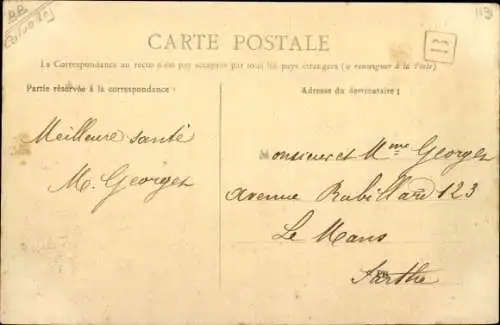 BB
Calvados
113
B
CARTE POSTALE
La Correspondance au recto n'est pas acceptée par tous les pays étrangers (se renseigner à la Poste)
Partie réservée à la correspondance :
Adresse du destinataire :
Meilleure santé
M. Georges
Monsieur et Mme Georges
Avenue Rubillard 123
Le Mans
Sarthe